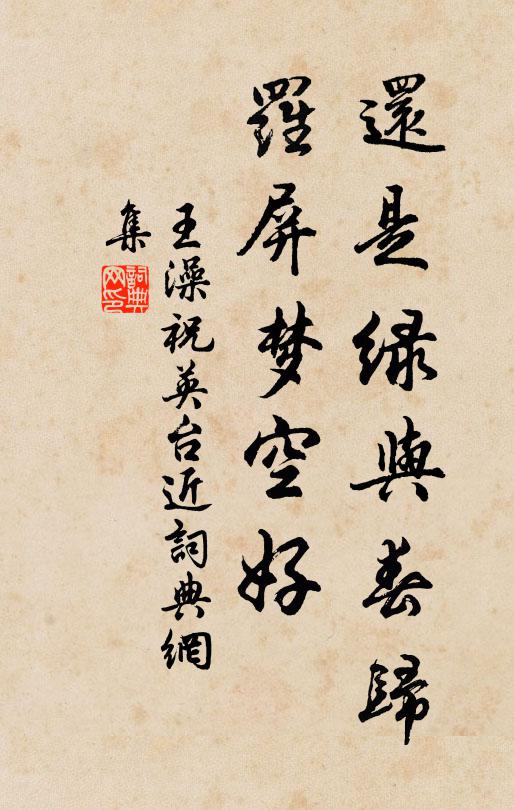 還是绿與春歸
羅屏梦空好
王澡祝英台近詞典網
集
詞典
网印